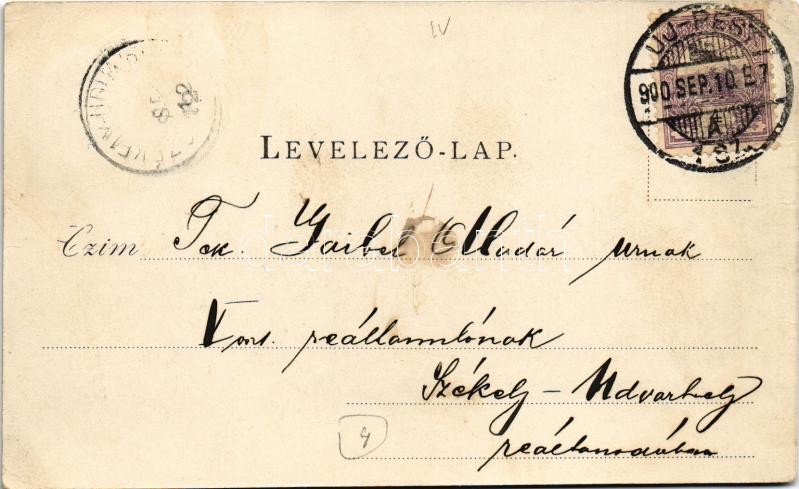 IV
UJ-PEST
900 SEP. 10. E 7
A
LEVELEZŐ-LAP.
Czim Tek Gaibel Aladár urnak
V oszt. reáltanulónak
Székely-Udvarhely
reáltanodában
9
darabanth